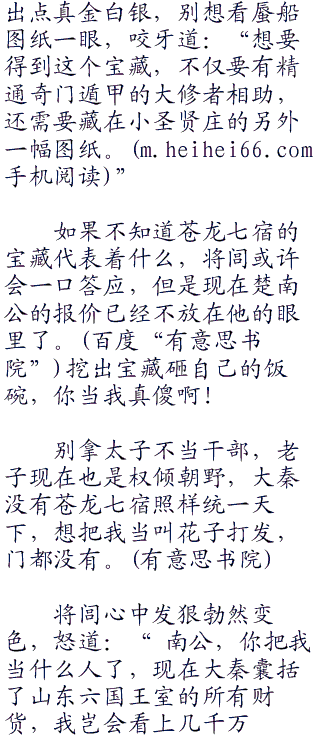 出点真金白银，别想看蜃船
图纸一眼，咬牙道：“想要
得到这个宝藏，不仅要有精
通奇门遁甲的大修者相助，
还需要藏在小圣贤庄的另外
一幅图纸。(m.heihei66.com
手机阅读)”
如果不知道苍龙七宿的
宝藏代表着什么，将闾或许
会一口答应，但是现在楚南
公的报价已经不放在他的眼
里了。(百度“有意思书
院”)挖出宝藏砸自己的饭
碗，你当我真傻啊！
别拿太子不当干部，老
子现在也是权倾朝野，大秦
没有苍龙七宿照样统一天
下，想把我当叫花子打发，
门都没有。(有意思书院)
将闾心中发狠勃然变
色，怒道：“ 南公，你把我
当什么人了，现在大秦囊括
了山东六国王室的所有财
货，我岂会看上几千万